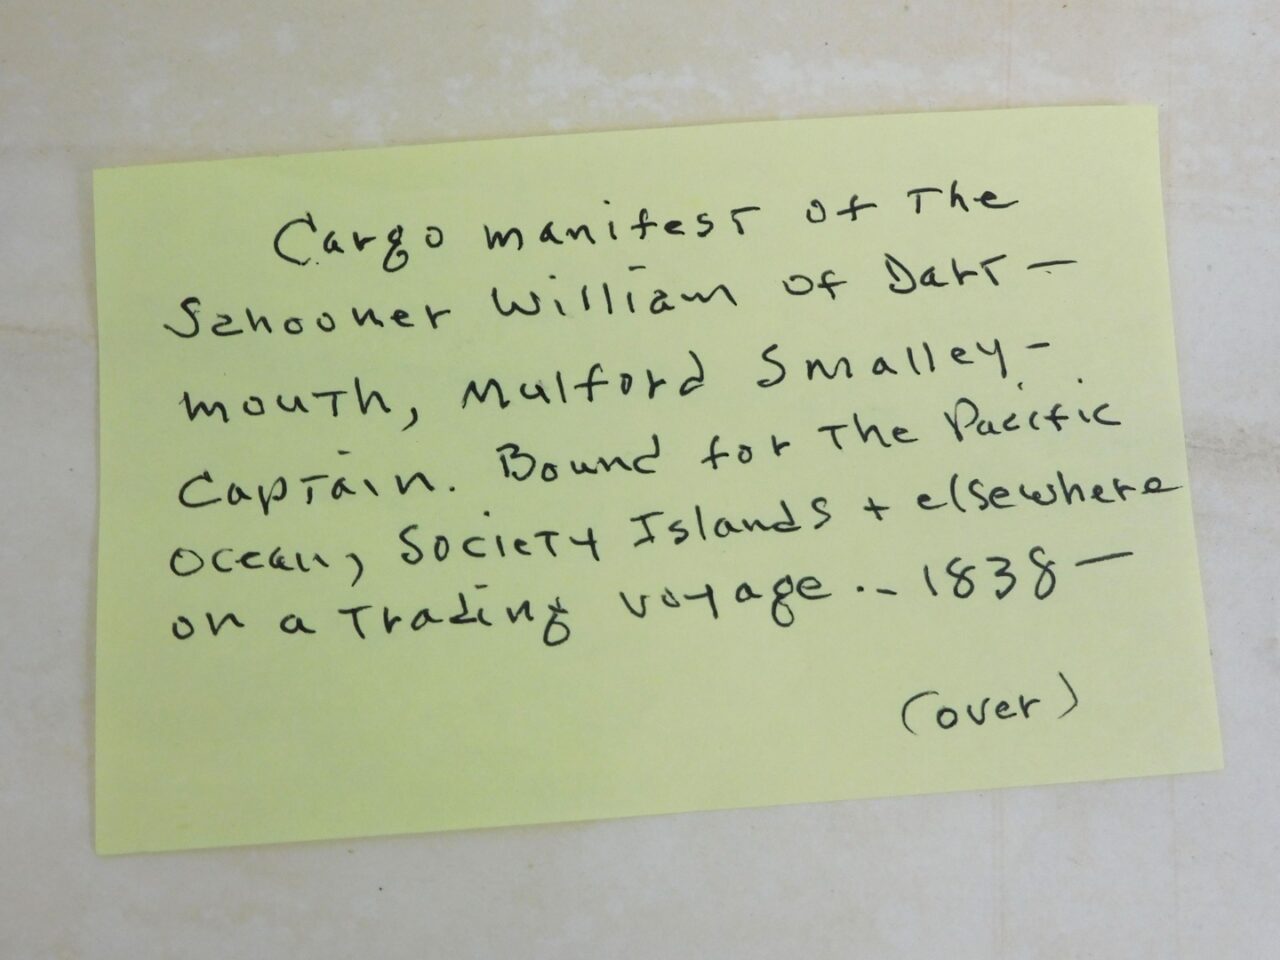 Cargo manifest of the
Schooner William of Dart-
mouth, Mulford Smalley-
Captain. Bound for the Pacific
Ocean, Society Islands + elsewhere
on a Trading voyage .. - 1838 -
(over)